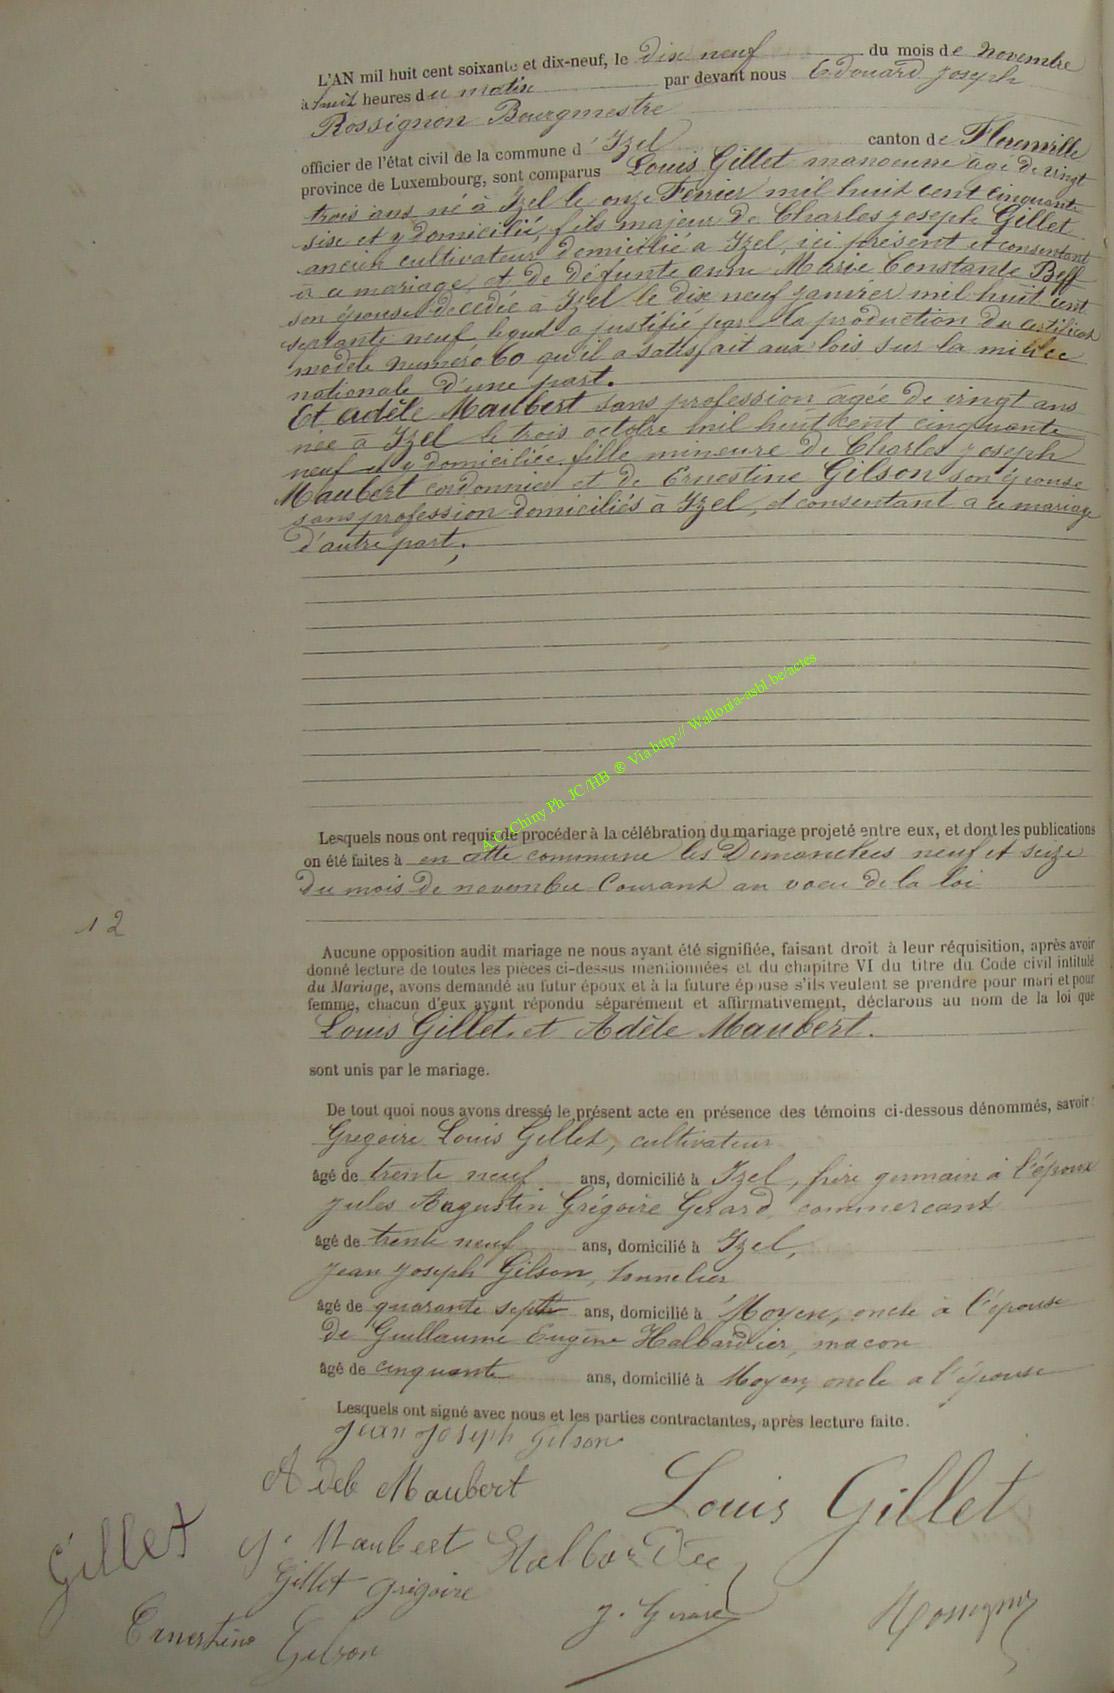 L'AN mil huit cent soixante et dix-neuf, le dix neuf du mois de novembre
à huit heures du matin par devant nous Edouard Joseph
Rossignon Bourgmestre
officier de l'état civil de la commune d' Izel canton de Florenville
province de Luxembourg, sont comparus Louis Gillet manoeuvre âgé de vingt
trois ans né à Izel le onze Février mil huit cent cinquante
sixe et y domicilié, fils majeur de Charles joseph Gillet
ancien cultivateur domicilié à Izel, ici présent et consentant
à ce mariage, et de défunte anne Marie Constante Beff
son épouse decedée à Izel le dix neuf janvier mil huit cent
septante neuf, lequel a justifié par la production du certificat
modèle numero 60 qu'il a satisfait aux lois sur la milice
nationale d'une part.
Et adèle Maubert sans profession âgée de vingt ans
née à Izel le trois octobre mil huit cent cinquante
neuf et y domiciliée, fille mineure de Charles joseph
Maubert cordonnier et de Ernestine Gilson son épouse
sans profession domiciliés à Izel, et consentant a ce mariage
d'autre part;
A.C. Chiny Ph JC/HB ® Via http:// Wallonia-asbl.be/actes
Lesquels nous ont requis de procéder à la célébration du mariage projeté entre eux, et dont les publications
on été faites à en cette commune les Dimanches neuf et seize
du mois de novembre Courant au voeu de la loi
12
Aucune opposition audit mariage ne nous ayant été signifiée, faisant droit à leur réquisition, après avoir
donné lecture de toutes les pièces ci-dessus mentionnées et du chapitre VI du titre du Code civil intitulé
du Mariage, avons demandé au futur époux et à la future épouse s'ils veulent se prendre pour mari et pour
femme, chacun d'eux ayant répondu séparément et affirmativement, déclarons au nom de la loi que
Louis Gillet et Adèle Maubert.
sont unis par le mariage.
De tout quoi nous avons dressé le présent acte en présence des témoins ci-dessous dénommés, savoir:
Gregoire Louis Gillet, cultivateur
âgé de trente neuf ans, domicilié à Izel, frère germain à l'époux
jules Augustin Grégoire Gerard, commercant
âgé de trente neuf ans, domicilié à Izel,
jean joseph Gilson, tonnelier
âgé de quarante sept ans, domicilié à Moyen, oncle à l'épouse
de Guillaume Eugène Halbardier, macon
âgé de cinquante ans, domicilié à Moyen, oncle a l'épouse
Lesquels ont signé avec nous et les parties contractantes, après lecture faite.
jean joseph Gilson
Adele Maubert
Louis Gillet
Gillet
j. Maubert
Gillet Grégoire
j. Girard
Rossignon
Ernestine Gilson